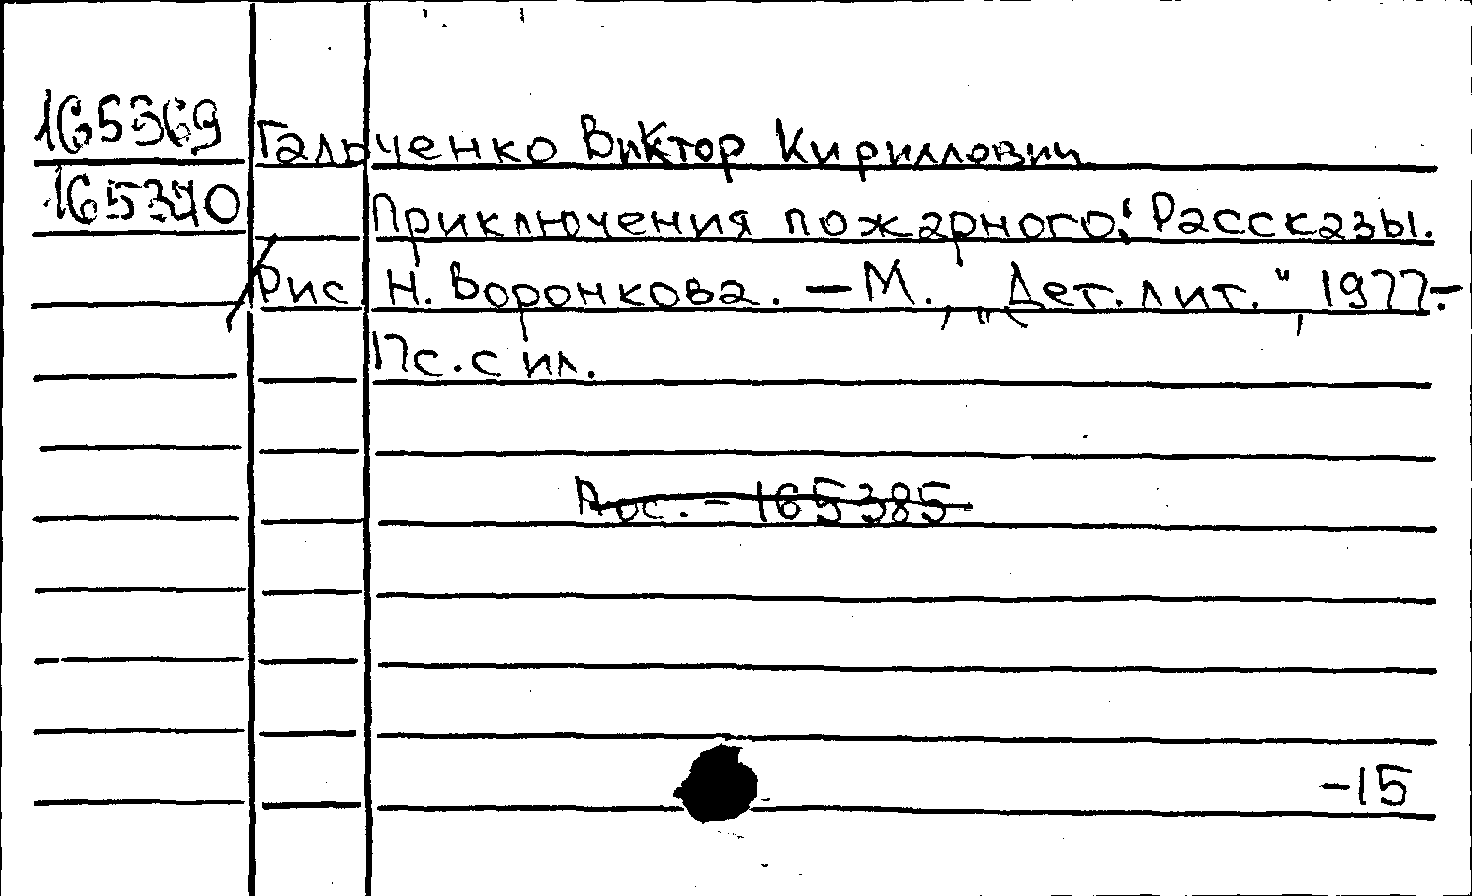 165369 Гальченко Виктор Кириллович
165370 Приключения пожарного: Рассказы.
Рис. Н. Воронкова. — М., „Дет. лит.", 1977.-
17с. с ил.
Рос. - 165385
-15